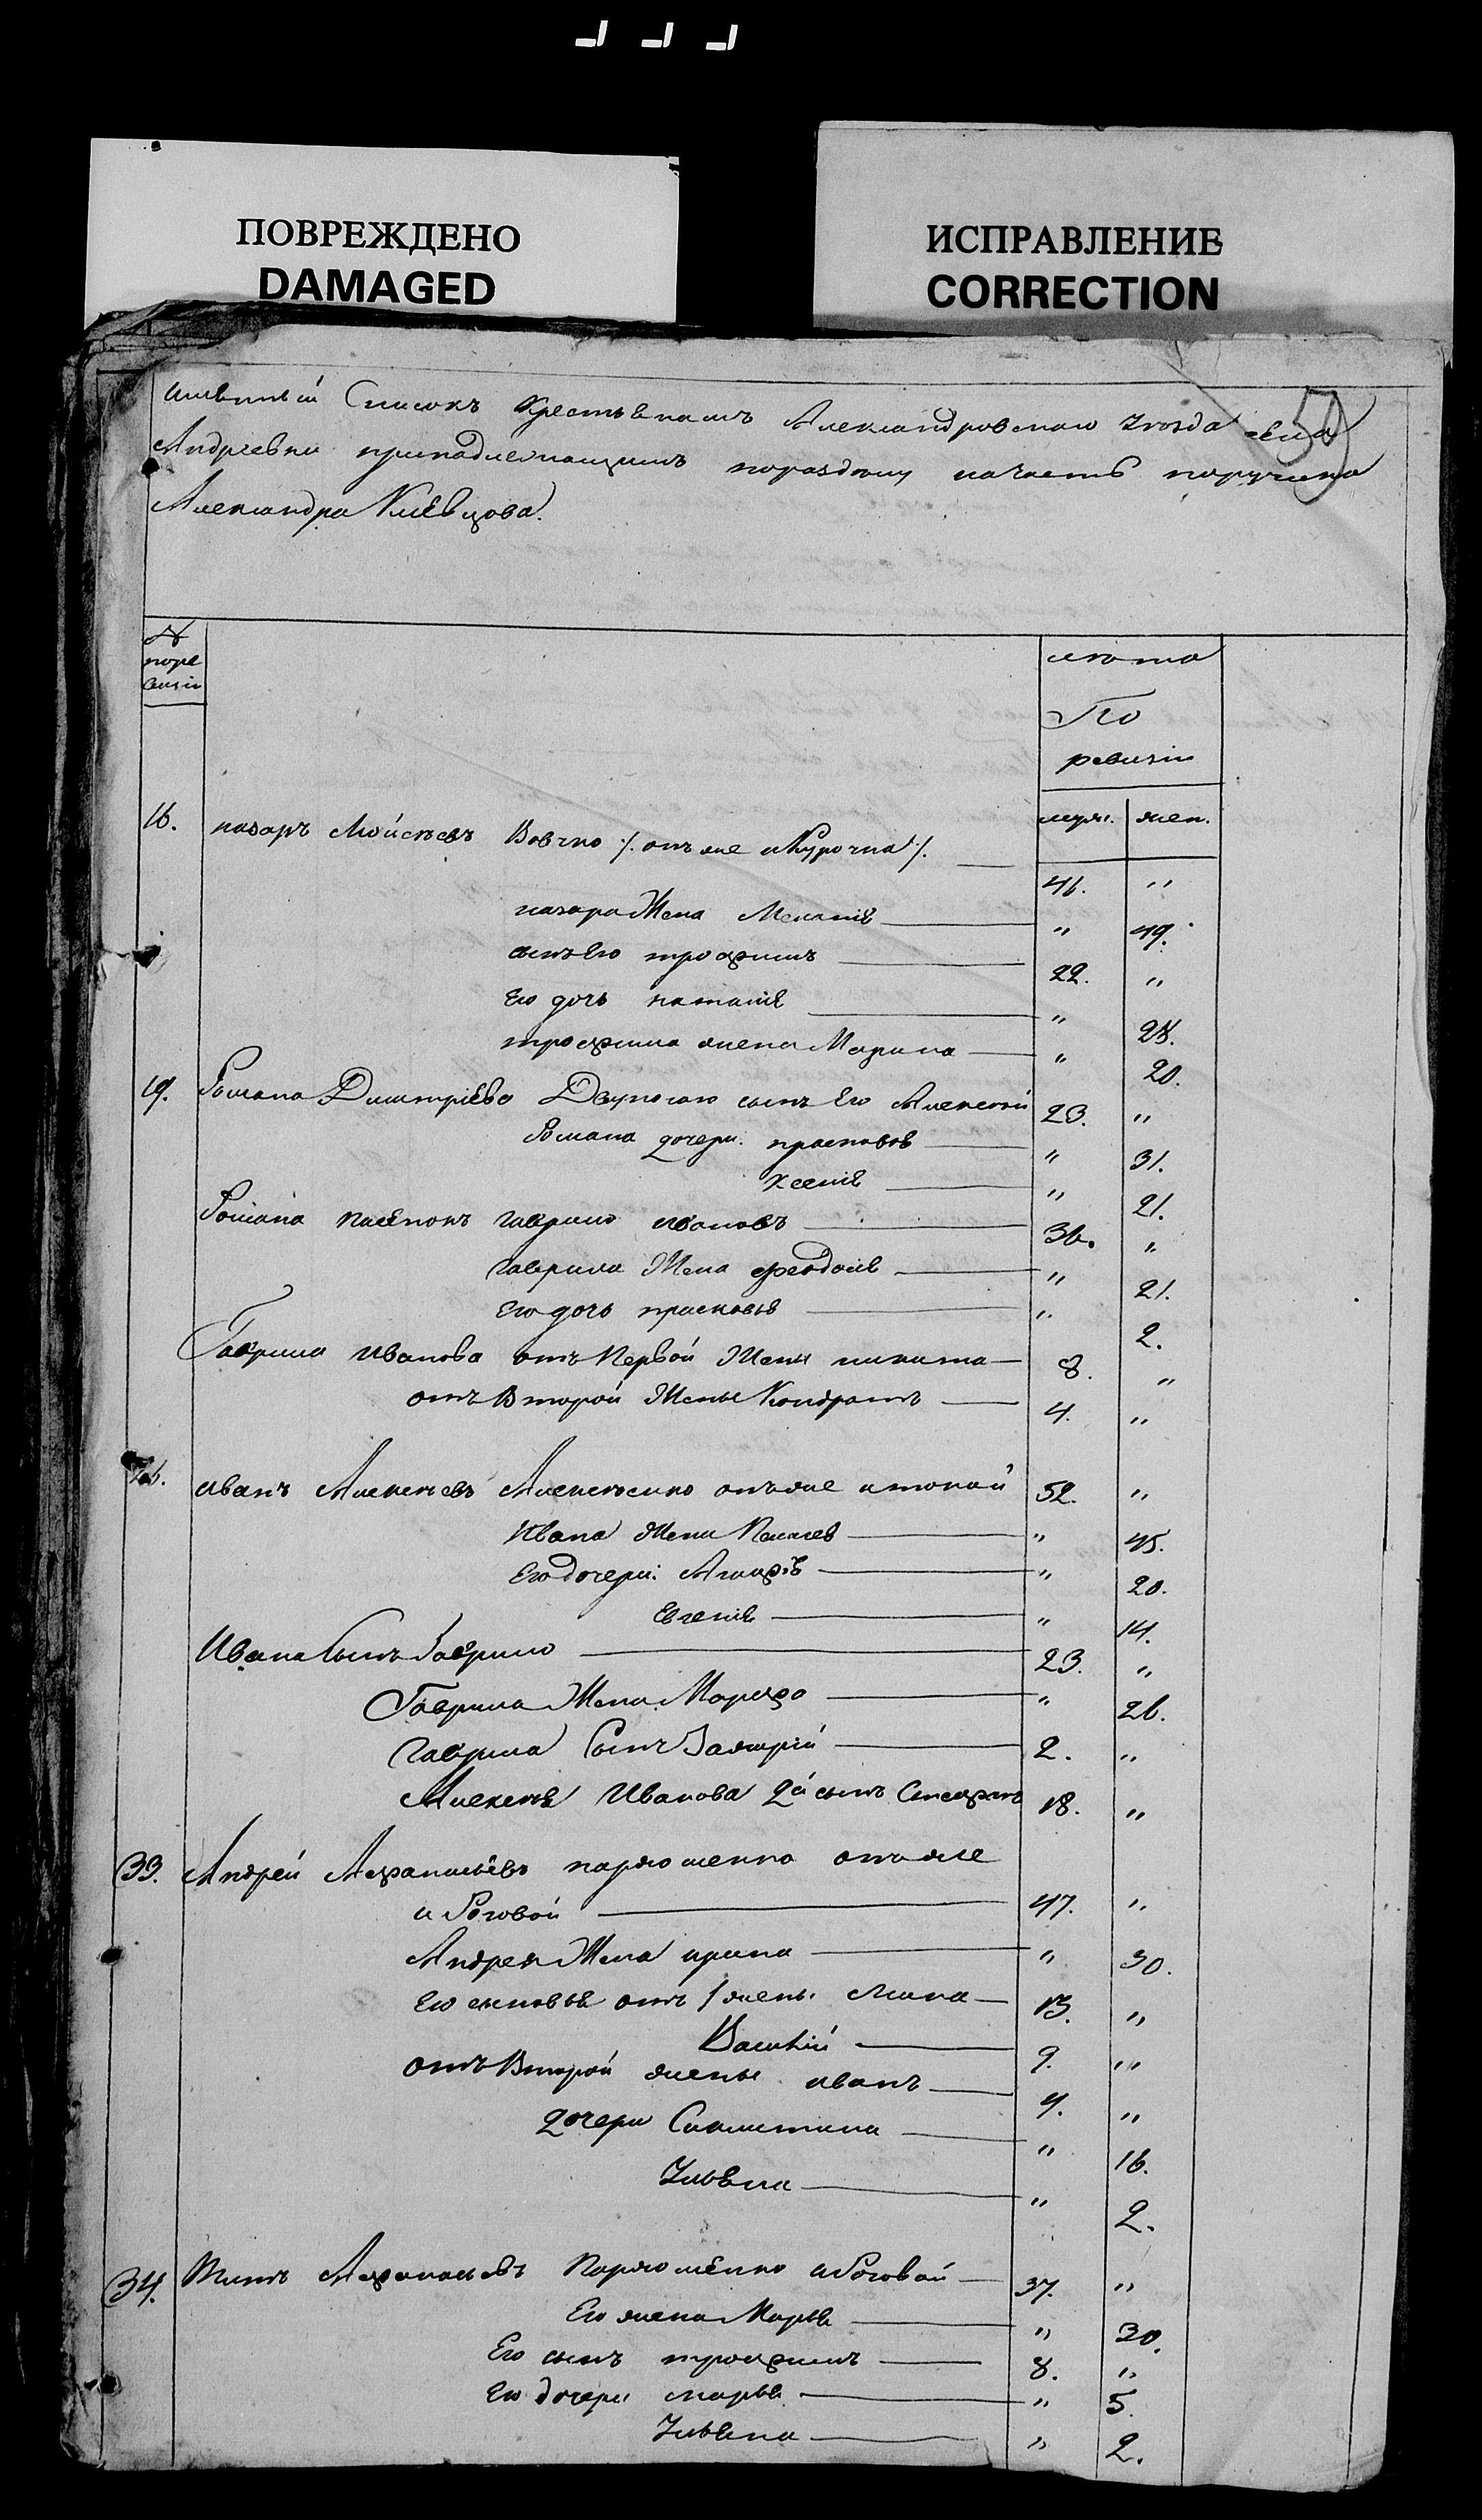 ПОВРЕЖДЕНО
DAMAGED
ИСПРАВЛЕНИЕ
CORRECTION
имянный Списокъ Крестьянамъ Александровскаго уезда села
Андреевки принадлежащимъ поразделу начасть поручика
Александра Клевцова.
№
поре
визии
лета
По
ревизии
муж. жен.
16. назаръ Мойсеевъ Вовчко /: онъ же и Курочка :/ 46. "
назара Жена Меланія " 49.
сынъ Его трофимъ 22. "
Его дочь наталія " 28.
трофима жена Марина " 20.
19. Романа Димитріева сынъ Его Алексей 23. "
Романа дочери: прасковья " 31.
ксенія " 21.
Романа пасынокъ гаврило ивановъ 36. "
гаврила Жена феодосія " 21.
Его дочь прасковья " 2.
Гаврила иванова отъ Первой Жены никита 8. "
отъ Второй Жены Кондратъ 4. "
26. иванъ Алексеевъ Алексеенко онъ же 52. "
Ивана Жена Пелагея " 45.
Его дочери: Агафія " 20.
Евгенія " 14.
Ивана Сынъ Гаврило 23. "
Гаврила Жена Марфа " 26.
гаврила Сынъ Дмитрій 2. "
Алексея Иванова 2й сынъ Стефанъ 18. "
33. Андрей Афанасьевъ пархоменко онъ же
и Роговой 47. "
Андрея Жена ирина " 30.
Его сыновья отъ 1 жены Мина 13. "
Василій 9. "
отъ Второй жены иванъ 4. "
дочери " 16.
Ульяна " 2.
34. Титъ Афанасьевъ Пархоменко и Роговой 37. "
Его жена Марья " 30.
Его сынъ трофимъ 8. "
Его дочери марья " 5.
Ульяна " 2.